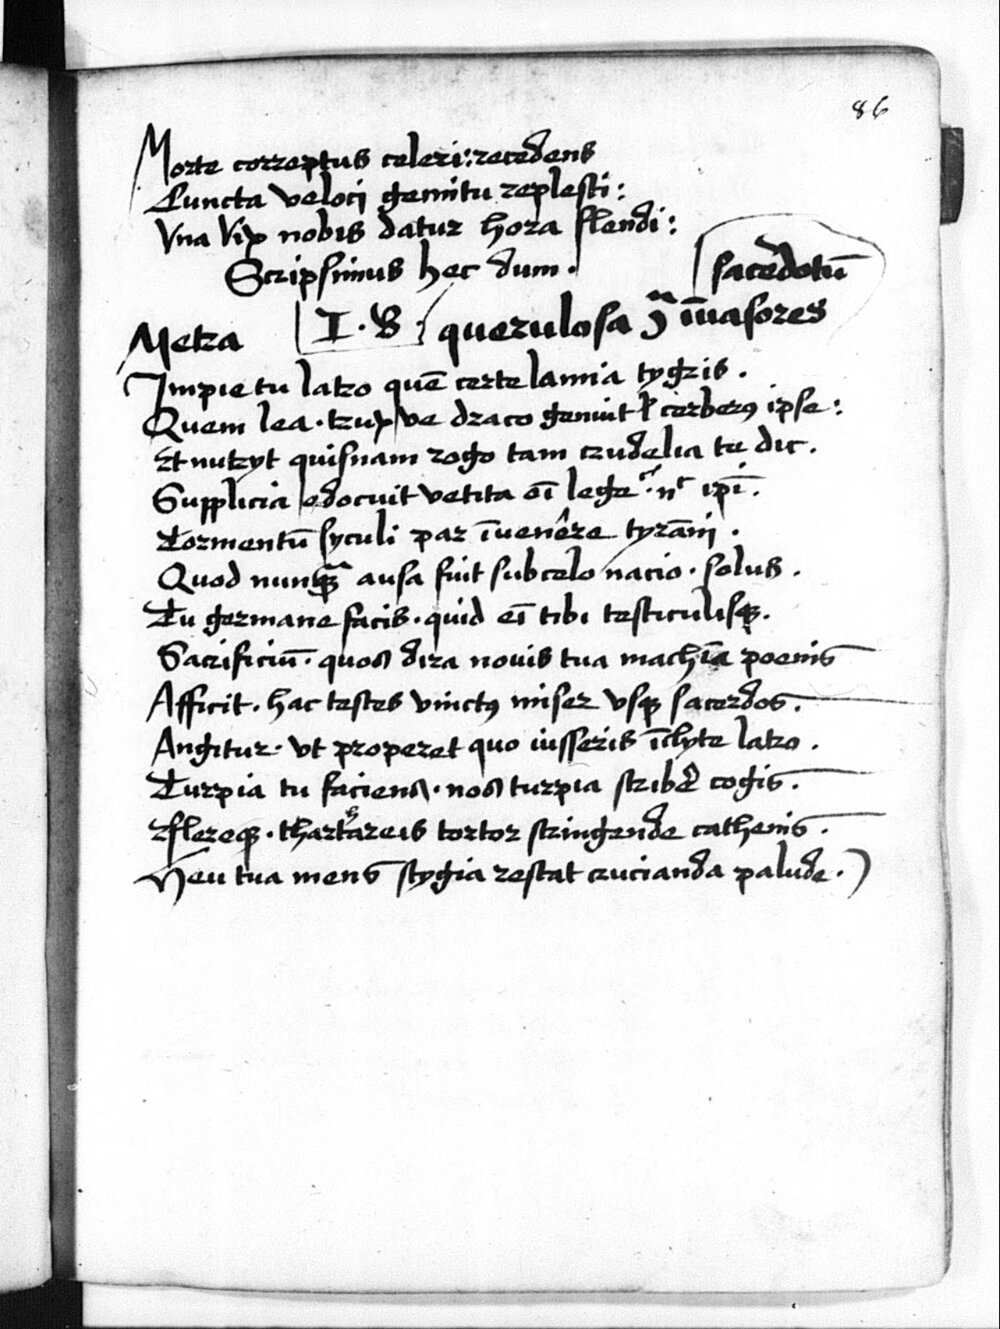 86
Morte correptus celeri: recedens
Cuncta veloci gemitu replesti:
Vna vix nobis datur hora flendi:
Scripsimus hec dum.
sacerdotū
Metra I. B. querulosa ꝯ͂ īuasores
Impie tu latro quē certe lamia tygris.
Quem lea. trux ve draco genuit ł cerberꝰ ipse:
Et nutryt quisnam rogo tam crudelia te dic.
Supplicia edocuit vetita oī lege.
Tormentū syculi par īuenere tyrāni.
Quod nunꝙ̄ ausa fuit sub celo nacio. solus.
Tu germane facis. quid eī tibi testiculisqꝫ.
Sacrificiū. quos dira nouis tua machīa poenis
Afficit. hac testes vinctꝰ miser vsqꝫ sacerdos.
Angitur. vt properet quo iusseris īclyte latro.
Turpia tu faciens. nos turpia scribe᷑ cogis.
flereqꝫ. thartareis tortor stringende cathenis.
Heu tua mens stygia restat crucianda palude.